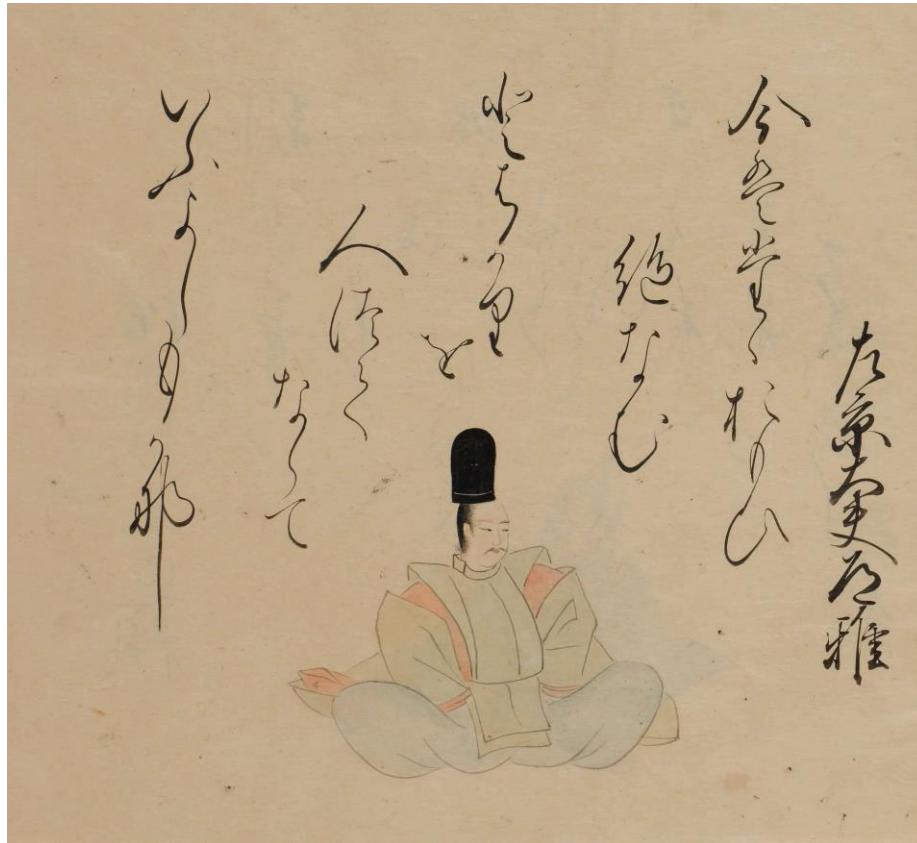 左京大夫道雅
今はたゝおもひ
絶なむ
とはかり
を
人つて
ならて
いふよしもかな